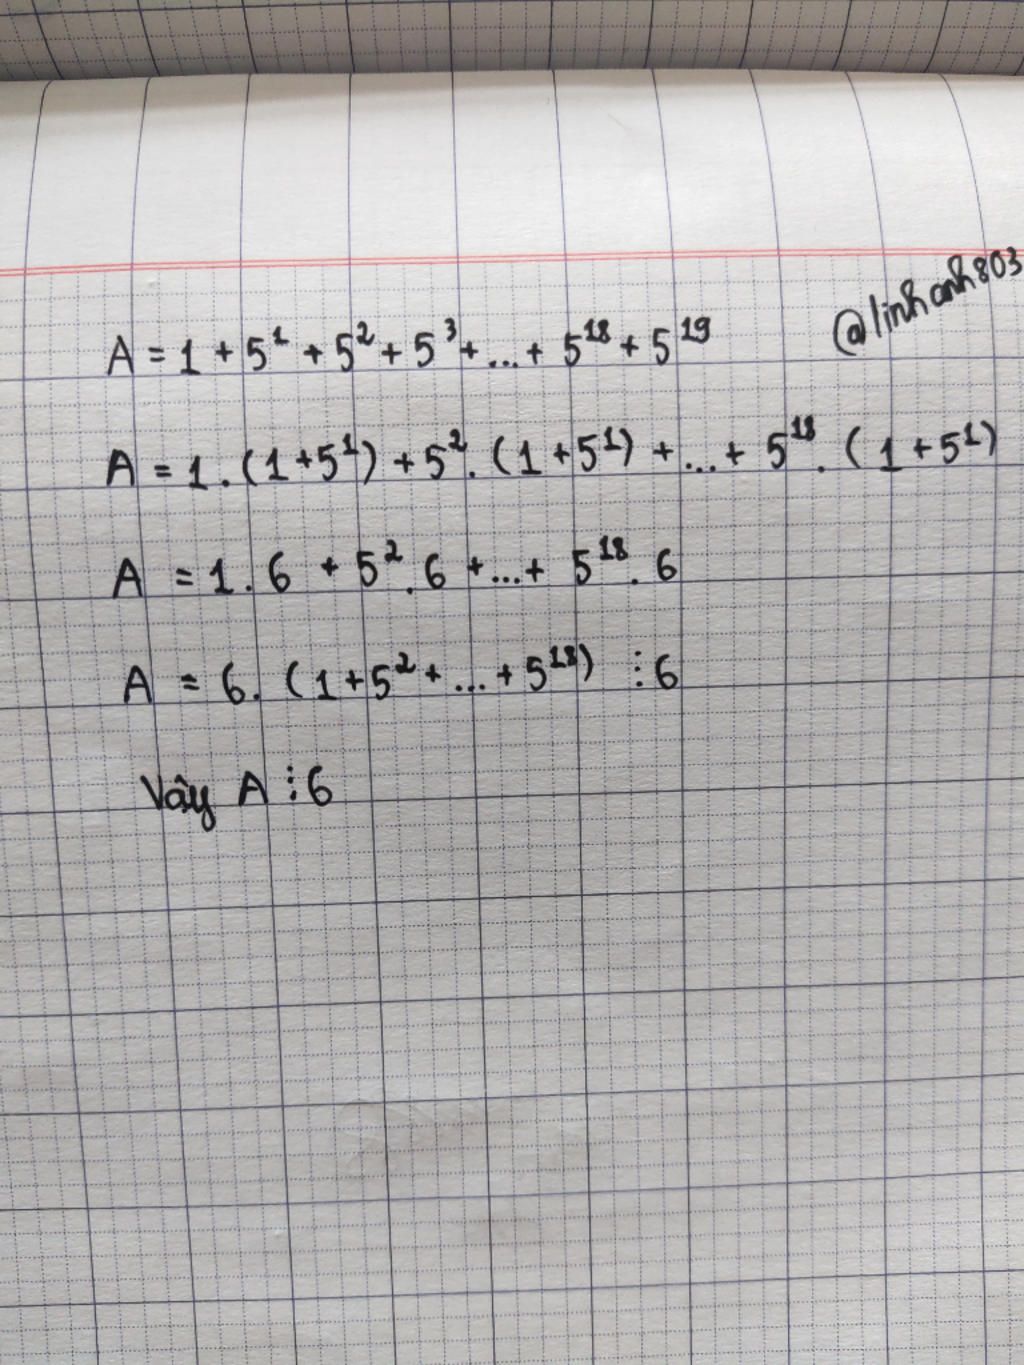 @linhanh803
A = 1 + 5¹ + 5² + 5³ + ... + 5¹⁸ + 5¹⁹
A = 1 . (1 + 5¹) + 5² . (1 + 5¹) + ... + 5¹⁸ . (1 + 5¹)
A = 1 . 6 + 5² . 6 + ... + 5¹⁸ . 6
A = 6 . (1 + 5² + ... + 5¹⁸) ⋮ 6
Vậy A ⋮ 6